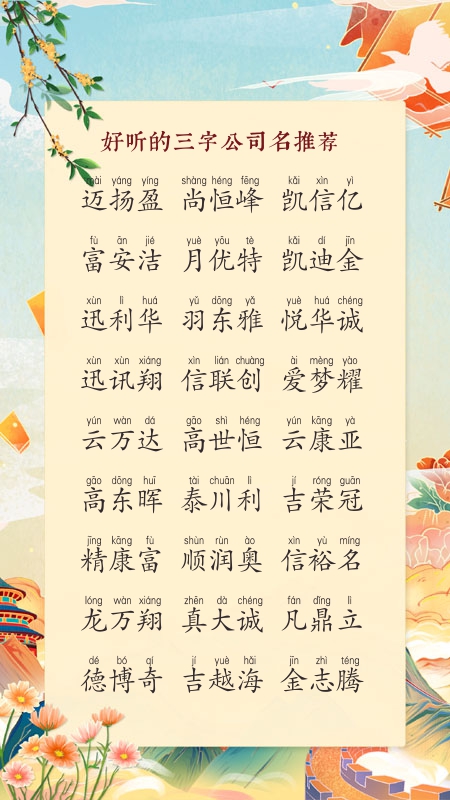 好听的三字公司名推荐
mài yáng yíng shàng héng fēng kǎi xìn yì
迈扬盈 尚恒峰 凯信亿
fù ān jié yuè yōu tè kǎi dí jīn
富安洁 月优特 凯迪金
xùn lì huá yǔ dōng yǎ yuè huá chéng
迅利华 羽东雅 悦华诚
xùn xùn xiáng xìn lián chuàng ài mèng yào
迅讯翔 信联创 爱梦耀
yún wàn dá gāo shì héng yún kāng yà
云万达 高世恒 云康亚
gāo dōng huī tài chuān lì jí róng guān
高东晖 泰川利 吉荣冠
jīng kāng fù shùn rùn ào xìn yù míng
精康富 顺润奥 信裕名
lóng wàn xiáng zhēn dà chéng fán dǐng lì
龙万翔 真大诚 凡鼎立
dé bó qí jí yuè hǎi jīn zhì téng
德博奇 吉越海 金志腾